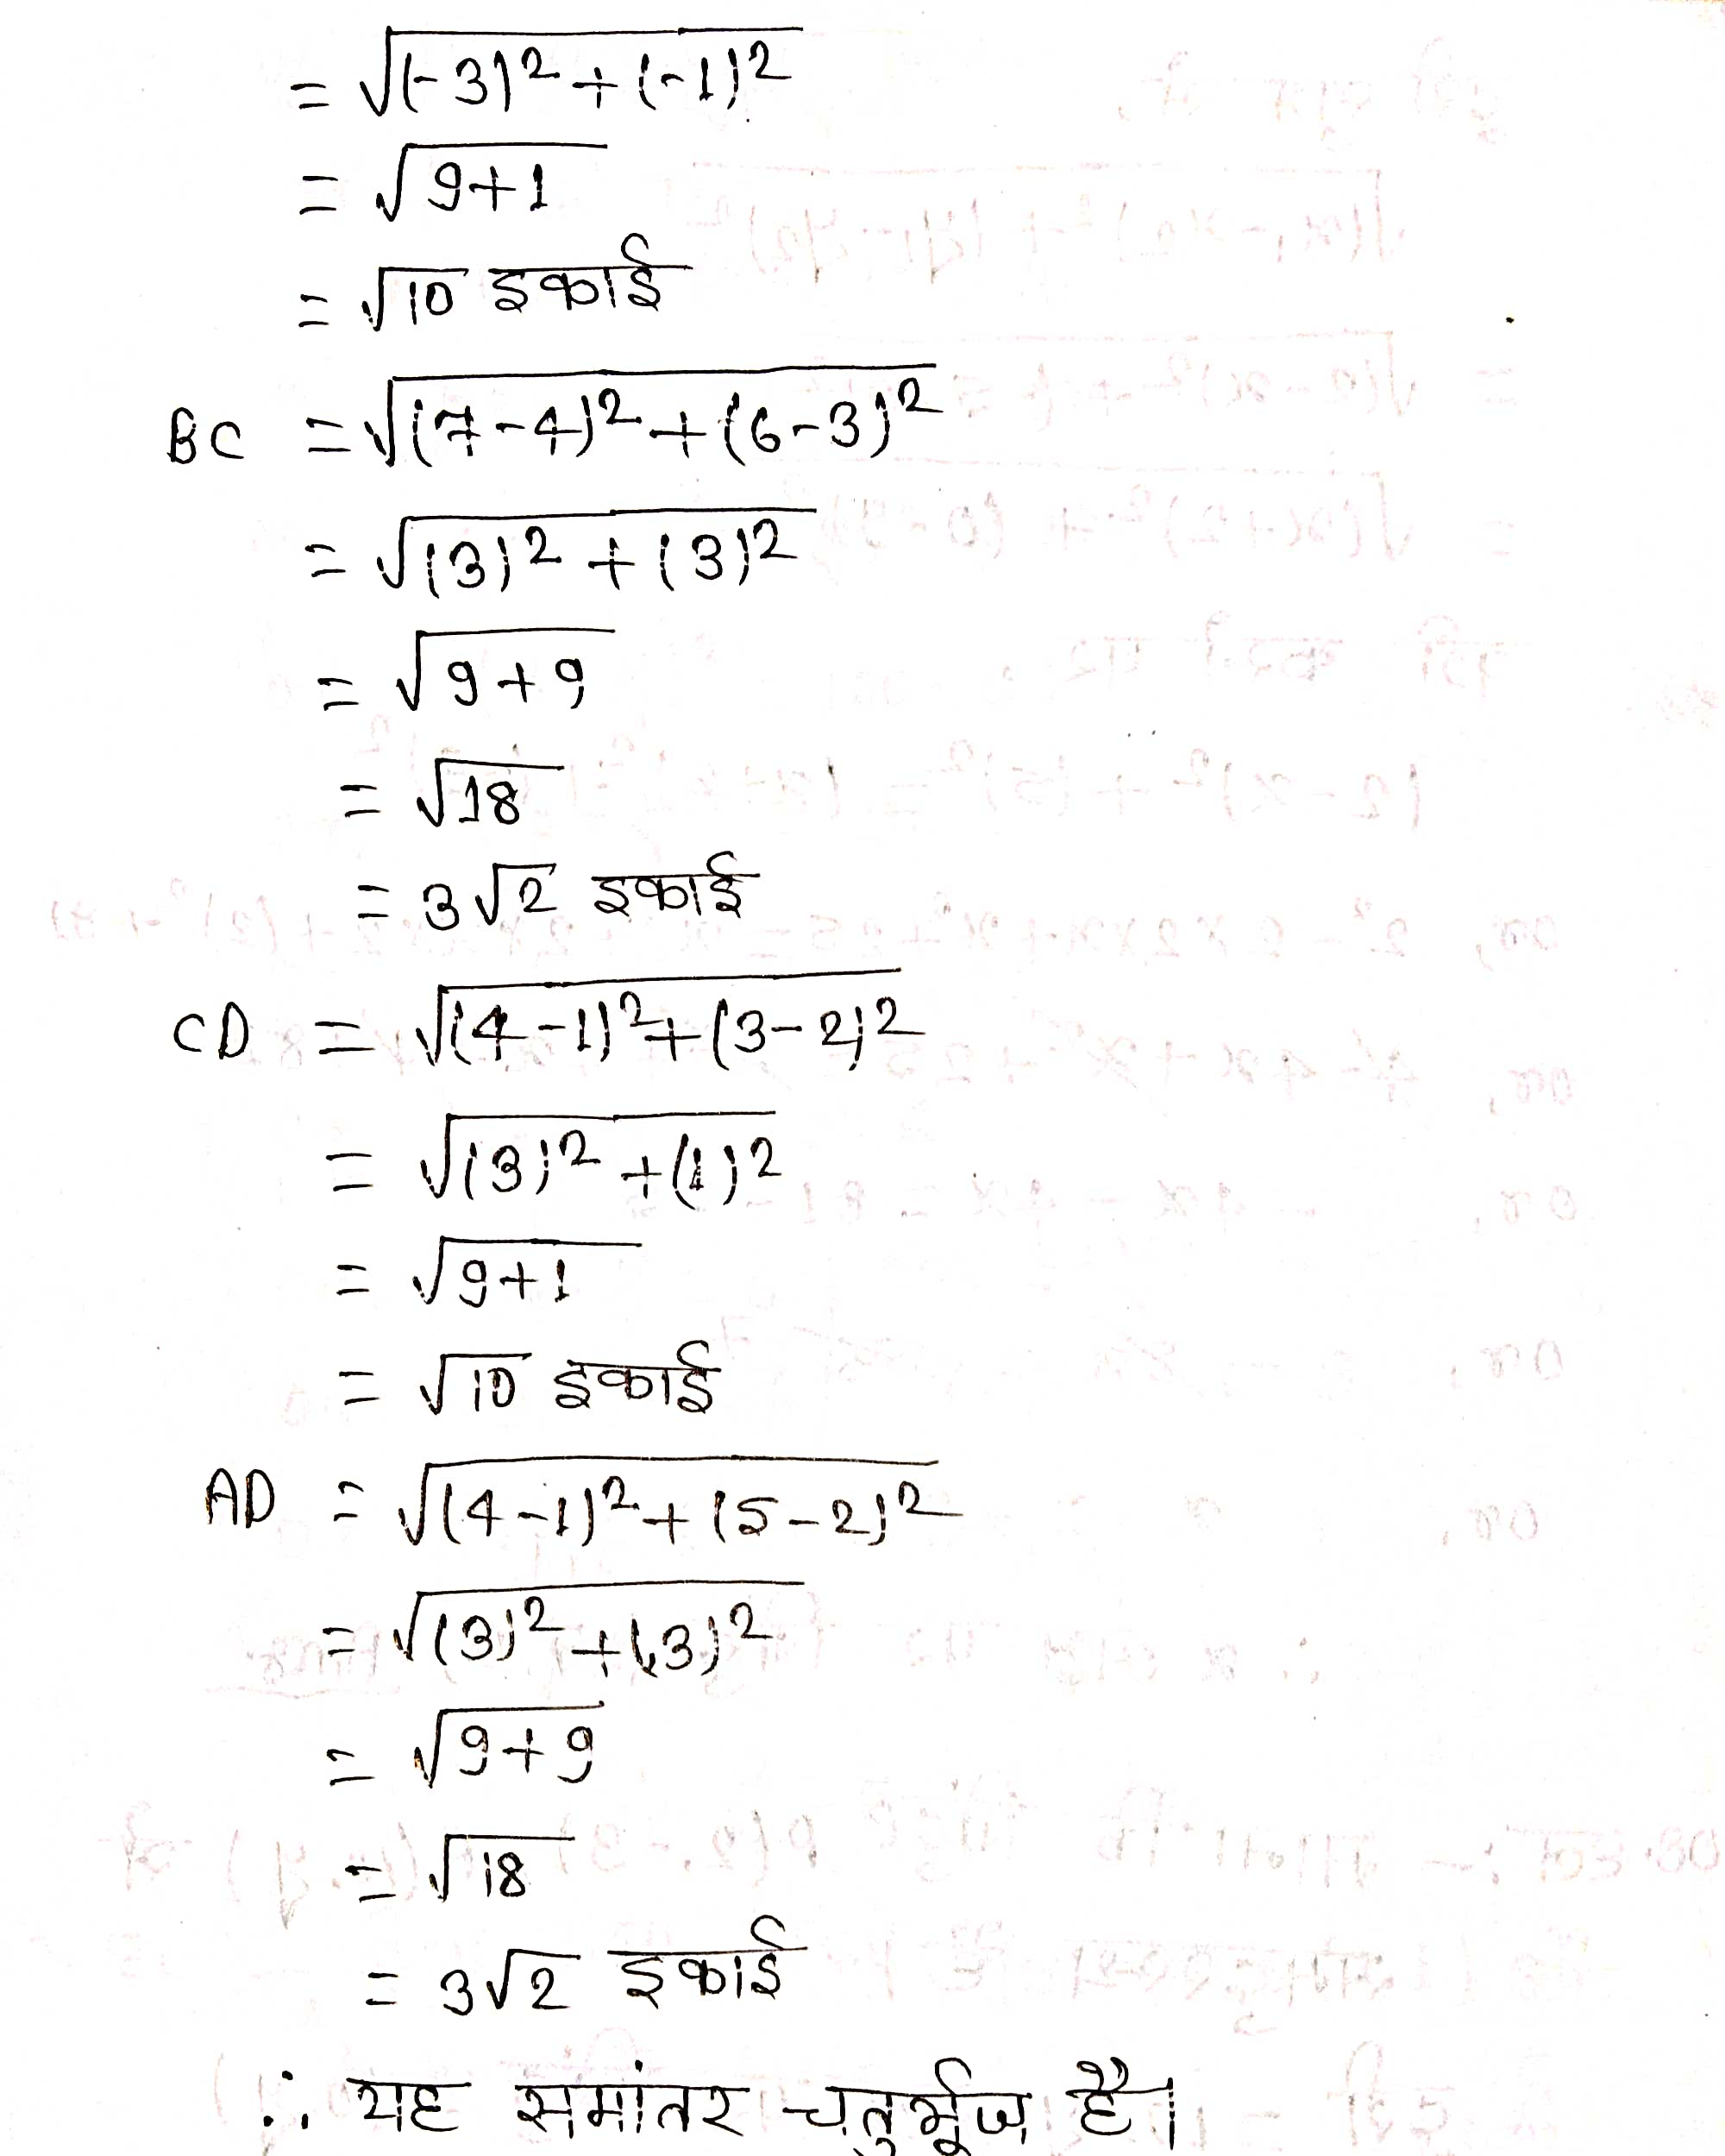 = √(-3)² + (-1)²
= √9+1
= √10 इकाई
BC = √(7-4)² + (6-3)²
= √(3)² + (3)²
= √9+9
= √18
= 3√2 इकाई
CD = √(4-1)² + (3-2)²
= √(3)² + (1)²
= √9+1
= √10 इकाई
AD = √(4-1)² + (5-2)²
= √(3)² + (3)²
= √9+9
= √18
= 3√2 इकाई
∴ यह समांतर चतुर्भूज है।